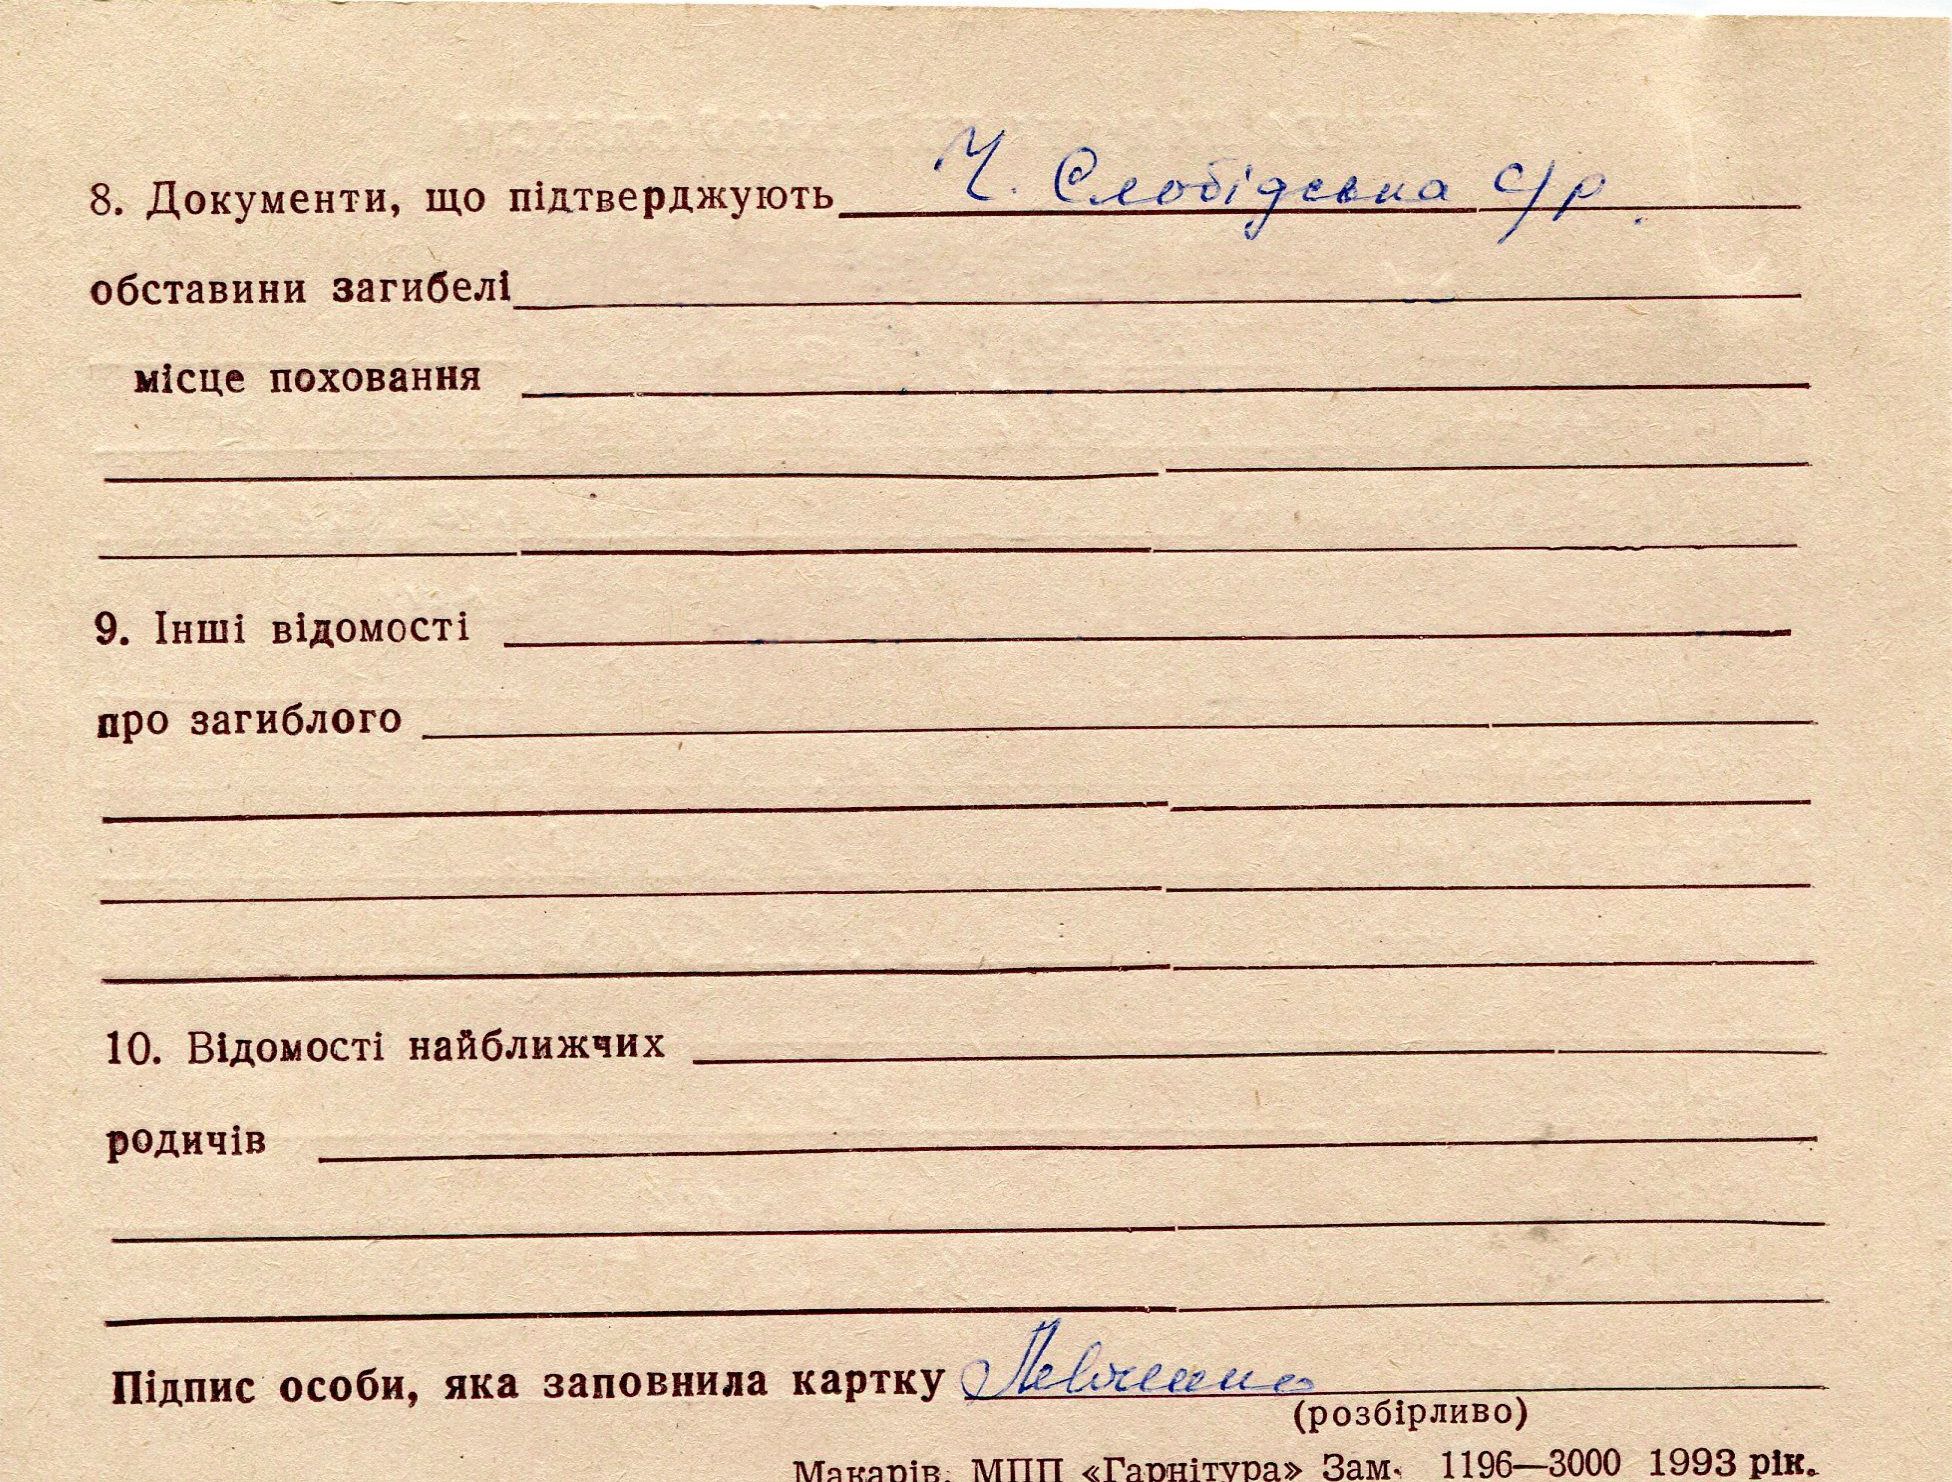 8. Документи, що підтверджують Ч. Слобідська с/р.
обставини загибелі
місце поховання
9. Інші відомості
про загиблого
10. Відомості найближчих
родичів
Підпис особи, яка заповнила картку
(розбірливо)
Макарів. МПП «Гарнітура» Зам. 1196—3000 1993 рік.